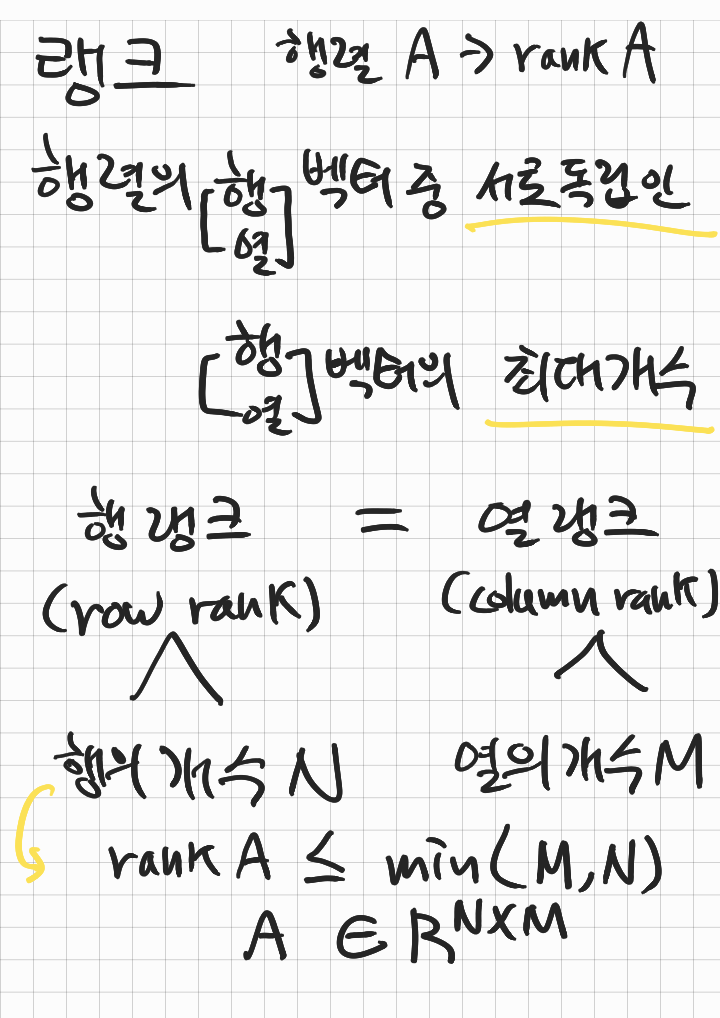 랭크 행렬 A → rank A
행렬의 [행 열] 벡터 중 서로독립인
[행 열] 벡터의 최대개수
행 랭크 = 열 랭크
(row rank) (column rank)
∧ ∧
행의 개수 N 열의 개수 M
rank A ≤ min(M,N)
A ∈ R^{N×M}